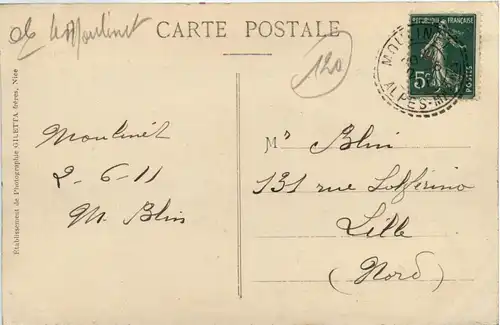 Moulinet
CARTE POSTALE
120
RÉPUBLIQUE FRANÇAISE
5c
POSTES
MOULINET
ALPES-M
Etablissement de Photographie GILETTA frères, Nice
Moulinet
2-6-11
M. Blin
Mr Blin
131 rue Solférino
Lille
(Nord)